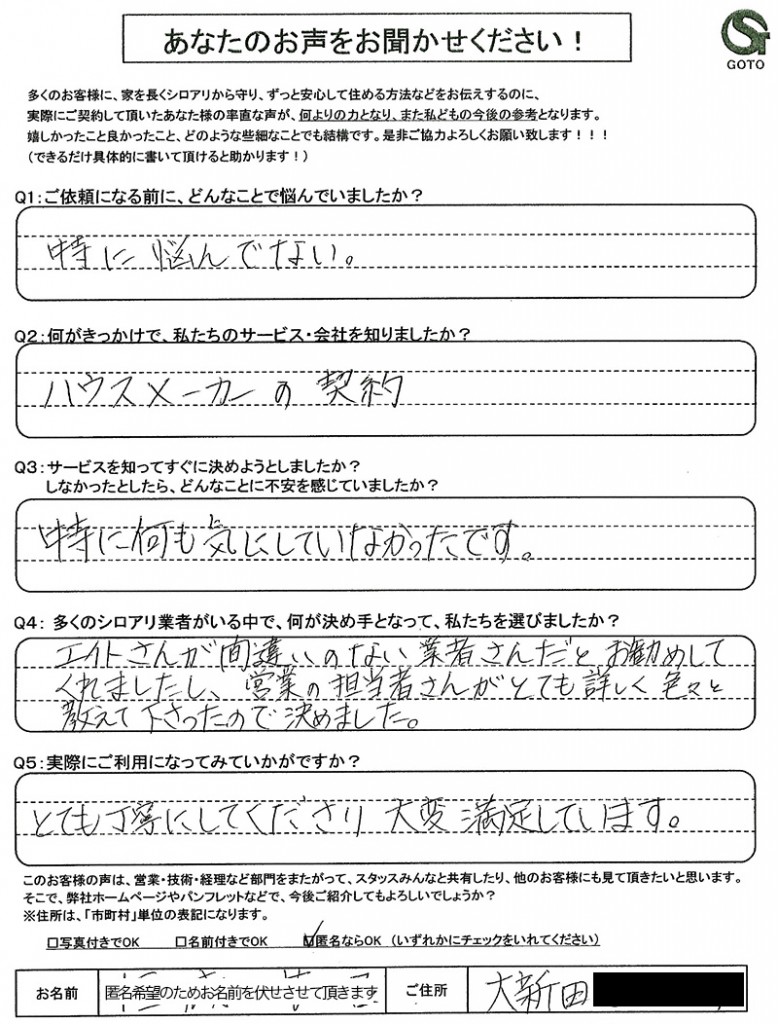 あなたのお声をお聞かせください！
GOTO
多くのお客様に、家を長くシロアリから守り、ずっと安心して住める方法などをお伝えするのに、
実際にご契約して頂いたあなた様の率直な声が、何よりの力となり、また私どもの今後の参考となります。
嬉しかったこと良かったこと、どのような些細なことでも結構です。是非ご協力よろしくお願い致します！！！
（できるだけ具体的に書いて頂けると助かります！）
Q1：ご依頼になる前に、どんなことで悩んでいましたか？
特に悩んでない。
Q2：何がきっかけで、私たちのサービス・会社を知りましたか？
ハウスメーカーの契約
Q3：サービスを知ってすぐに決めようとしましたか？
しなかったとしたら、どんなことに不安を感じていましたか？
特に何も気にしていなかったです。
Q4： 多くのシロアリ業者がいる中で、何が決め手となって、私たちを選びましたか？
エイトさんが間違いのない業者さんだとお勧めして
くれましたし、営業の担当者さんがとても詳しく色々と
教えて下さったので決めました。
Q5：実際にご利用になってみていかがですか？
とても丁寧にしてくださり大変満足しています。
このお客様の声は、営業・技術・経理など部門をまたがって、スタッスみんなと共有したり、他のお客様にも見て頂きたいと思います。
そこで、弊社ホームページやパンフレットなどで、今後ご紹介してもよろしいでしょうか？
※住所は、「市町村」単位の表記になります。
□写真付きでOK □名前付きでOK ☑匿名ならOK （いずれかにチェックをいれてください）
お名前 匿名希望のためお名前を伏せさせて頂きます ご住所 大新田